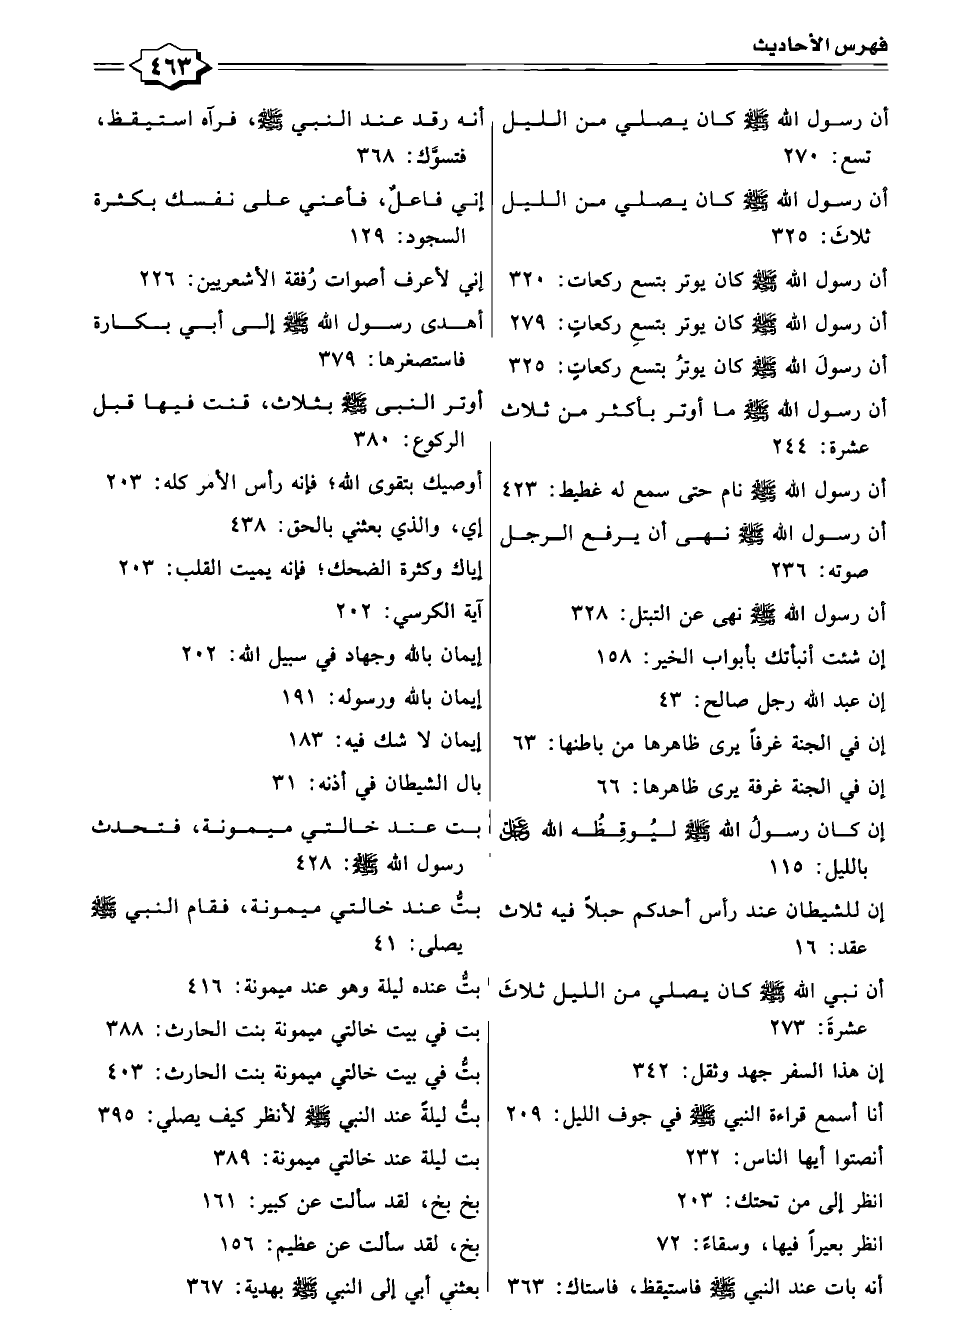 فهرس الأحاديث
٤٦٣
أن رسول الله ﷺ كان يصلي من الليل
تسع: ٢٧٠
أن رسول الله ﷺ كان يصلي من الليل
ثلاثَ: ٣٢٥
أن رسول الله ﷺ كان يوتر بتسع ركعات: ٣٢٠
أن رسول الله ﷺ كان يوتر بتسعِ ركعاتٍ: ٢٧٩
أن رسولَ الله ﷺ كان يوترُ بتسع ركعاتٍ: ٣٢٥
أن رسول الله ﷺ ما أوتر بأكثر من ثلاث
عشرة: ٢٤٤
أن رسول الله ﷺ نام حتى سمع له غطيط: ٤٢٣
أن رسول الله ﷺ نهى أن يرفع الرجل
صوته: ٢٣٦
أن رسول الله ﷺ نهى عن التبتل: ٣٢٨
إن شئت أنبأتك بأبواب الخير: ١٥٨
إن عبد الله رجل صالح: ٤٣
إن في الجنة غرفاً يرى ظاهرها من باطنها: ٦٣
إن في الجنة غرفة يرى ظاهرها: ٦٦
إن كان رسولُ الله ﷺ ليُوقِظُه الله ﷿
بالليل: ١١٥
إن للشيطان عند رأس أحدكم حبلاً فيه ثلاث
عقد: ١٦
أن نبي الله ﷺ كان يصلي من الليل ثلاثَ
عشرةَ: ٢٧٣
إن هذا السفر جهد وثقل: ٣٤٢
أنا أسمع قراءة النبي ﷺ في جوف الليل: ٢٠٩
أنصتوا أيها الناس: ٢٣٢
انظر إلى من تحتك: ٢٠٣
انظر بعيراً فيها، وسقاءً: ٧٢
أنه بات عند النبي ﷺ فاستيقظ، فاستاك: ٣٦٣
أنه رقد عند النبي ﷺ، فرآه استيقظ،
فتسوَّك: ٣٦٨
إني فاعلٌ، فأعني على نفسك بكثرة
السجود: ١٢٩
إني لأعرف أصوات رُفقة الأشعريين: ٢٢٦
أهدى رسول الله ﷺ إلى أبي بكارة
فاستصغرها: ٣٧٩
أوتر النبى ﷺ بثلاث، قنت فيها قبل
الركوع: ٣٨٠
أوصيك بتقوى الله؛ فإنه رأس الأمر كله: ٢٠٣
إي، والذي بعثني بالحق: ٤٣٨
إياك وكثرة الضحك؛ فإنه يميت القلب: ٢٠٣
آية الكرسي: ٢٠٢
إيمان بالله وجهاد في سبيل الله: ٢٠٢
إيمان بالله ورسوله: ١٩١
إيمان لا شك فيه: ١٨٣
بال الشيطان في أذنه: ٣١
بت عند خالتي ميمونة، فتحدث
رسول الله ﷺ: ٤٢٨
بتُّ عند خالتي ميمونة، فقام النبي ﷺ
يصلى: ٤١
بتُّ عنده ليلة وهو عند ميمونة: ٤١٦
بت في بيت خالتي ميمونة بنت الحارث: ٣٨٨
بتُّ في بيت خالتي ميمونة بنت الحارث: ٤٠٣
بتُّ ليلةً عند النبي ﷺ لأنظر كيف يصلي: ٣٩٥
بت ليلة عند خالتي ميمونة: ٣٨٩
بخ بخ، لقد سألت عن كبير: ١٦١
بخ، لقد سألت عن عظيم: ١٥٦
بعثني أبي إلى النبي ﷺ بهدية: ٣٦٧